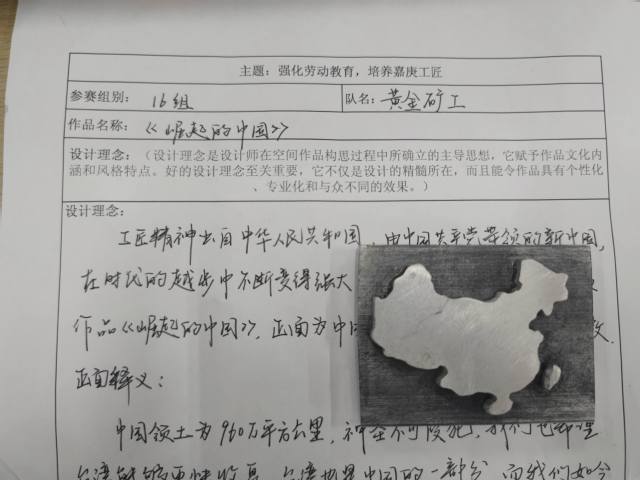 主题：强化劳动教育，培养嘉庚工匠
参赛组别： 16组 队名： 黄金矿工
作品名称：《崛起的中国》
设计理念：（设计理念是设计师在空间作品构思过程中所确立的主导思想，它赋予作品文化内
涵和风格特点。好的设计理念至关重要，它不仅是设计的精髓所在，而且能令作品具有个性化
、专业化和与众不同的效果。）
设计理念：
工匠精神出自中华人民共和国，由中国共产党带领的新中国，
在时代的越步中不断变得强大
作品《崛起的中国》，正面为中
正面释义：
中国领土为960万平方公里，神圣不可侵犯，
台湾 台湾也是中国的一部分 而我们如今